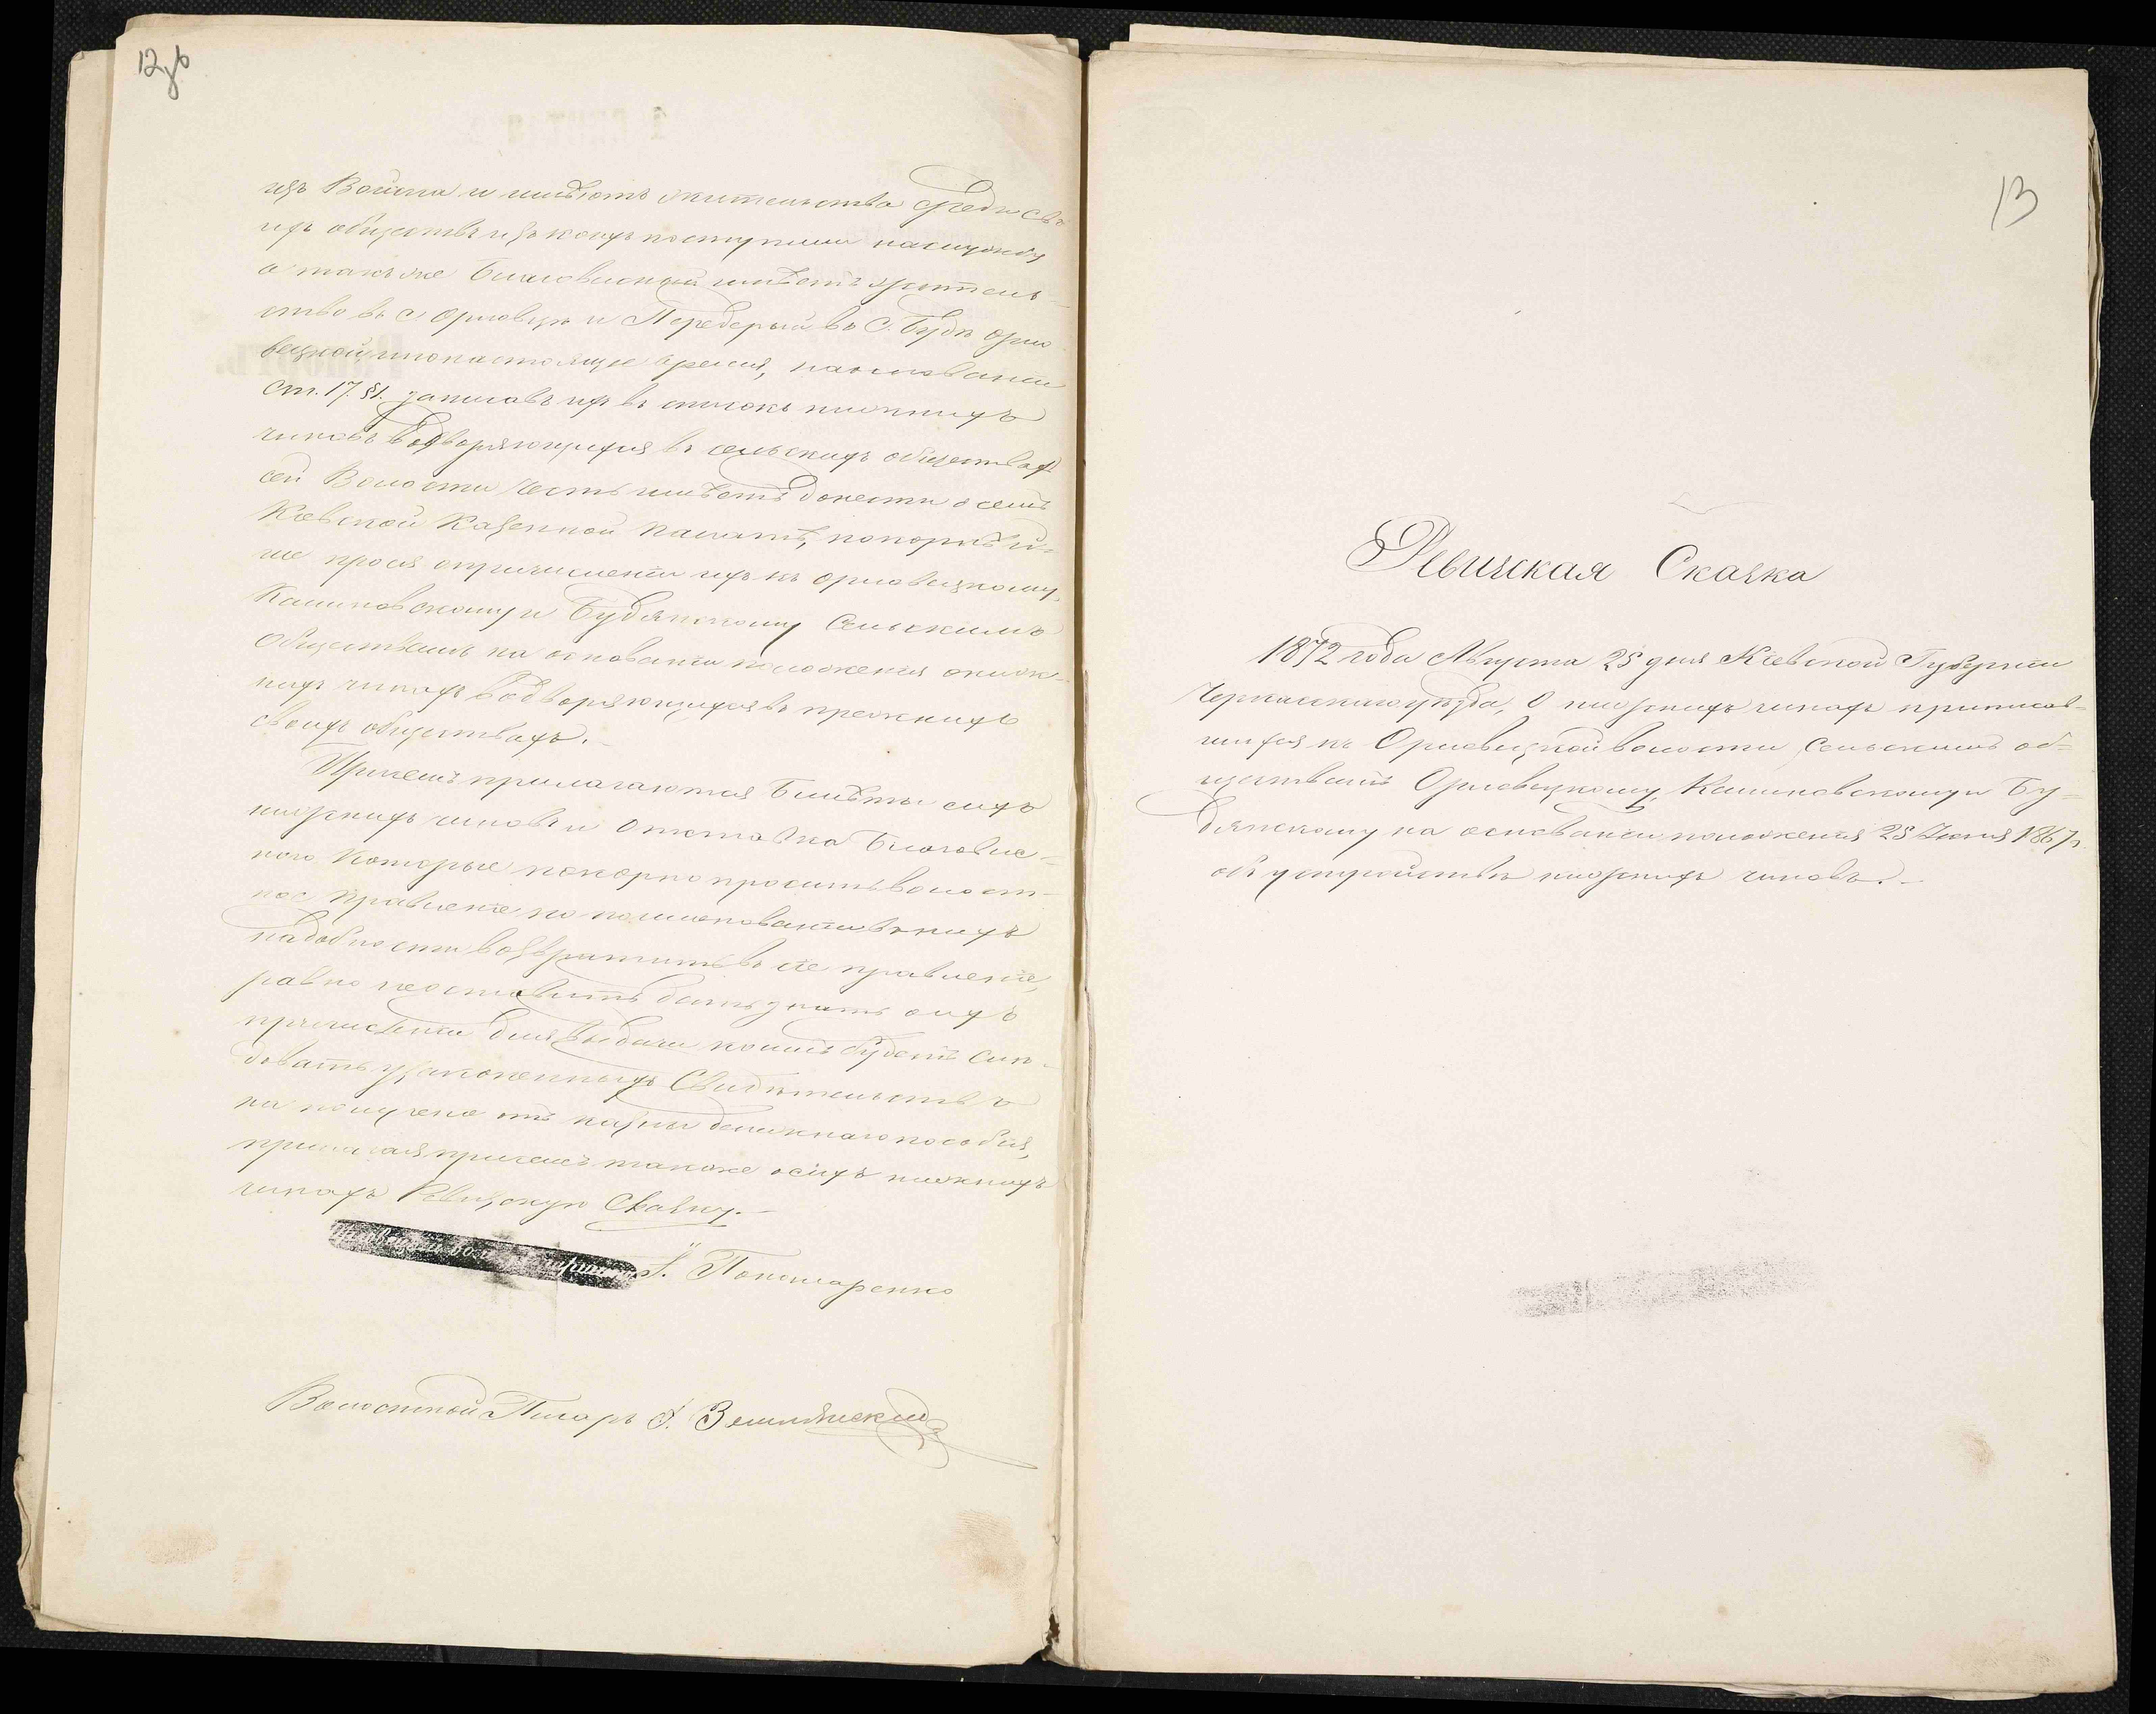 12 об
изъ Войска и имѣютъ жительство среди сво
ихъ обществъ изъ коихъ поступили на службу
а также Билговиский имѣетъ житель-
ство въ с. Орловцѣ и Передерый въ С. Будѣ Орло
вецкой и по настоящее время, на основании
Ст. 17. §1. записавъ ихъ въ списокъ нижнихъ
чиновъ водворяющихся въ сельскихъ обществахъ
сей Волости честь имѣетъ донести о семъ
Кіевской Казенной Палатѣ, покорнѣй-
ше прося о причисленіи ихъ къ Орловецкому,
Калиновскому и Будянскому Сельскимъ
Обществамъ на основаніи положенія о ниж-
нихъ чинахъ водворяющихся въ прежнихъ
своихъ обществахъ.
Причемъ прилагаются Билѣты сихъ
нижнихъ чиновъ и Отставка
которые покорно проситъ волост-
ное Правленіе по миновании въ нихъ
надобности возвратить въ сіе правленіе,
равно не оставить дать знать о ихъ
причисленіи для выдачи кому будетъ слѣ-
довать узаконенныхъ Свидѣтельствъ
на полученіе отъ казны денежнаго пособія,
прилагая при семъ также о сихъ нижнихъ
чинахъ Ревизскую Сказку.
Пономаренко
Волостной Писарь
13
Ревизская Сказка
1872 года Августа 25 дня Кіевской Губерніи
Черкасского уѣзда, О нижнихъ чинахъ приписав-
шихся къ Орловецкой волости Сельскимъ об-
ществамъ Орловецкому, Калиновскому и Бу-
дянскому на основаніи положенія 25 Іюня 1867 г.
объ устройствѣ нижнихъ чиновъ.